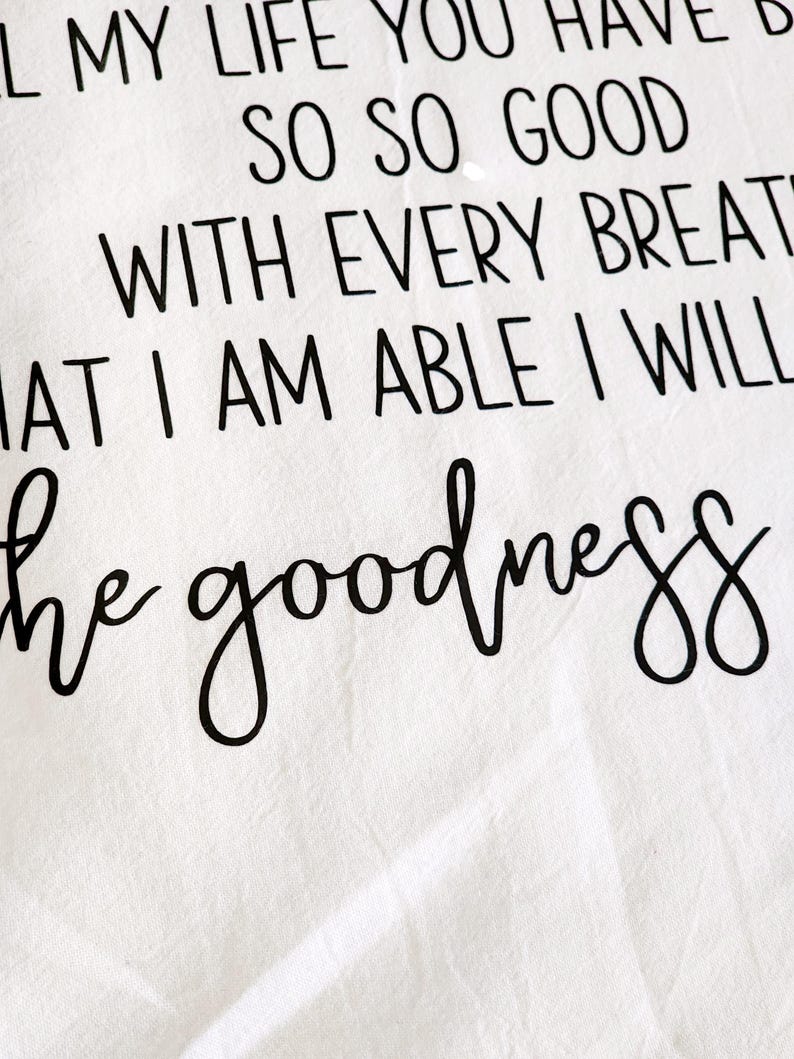 MY LIFE YOU HAVE
SO SO GOOD
WITH EVERY BREAT
I AM ABLE I WILL
the goodness